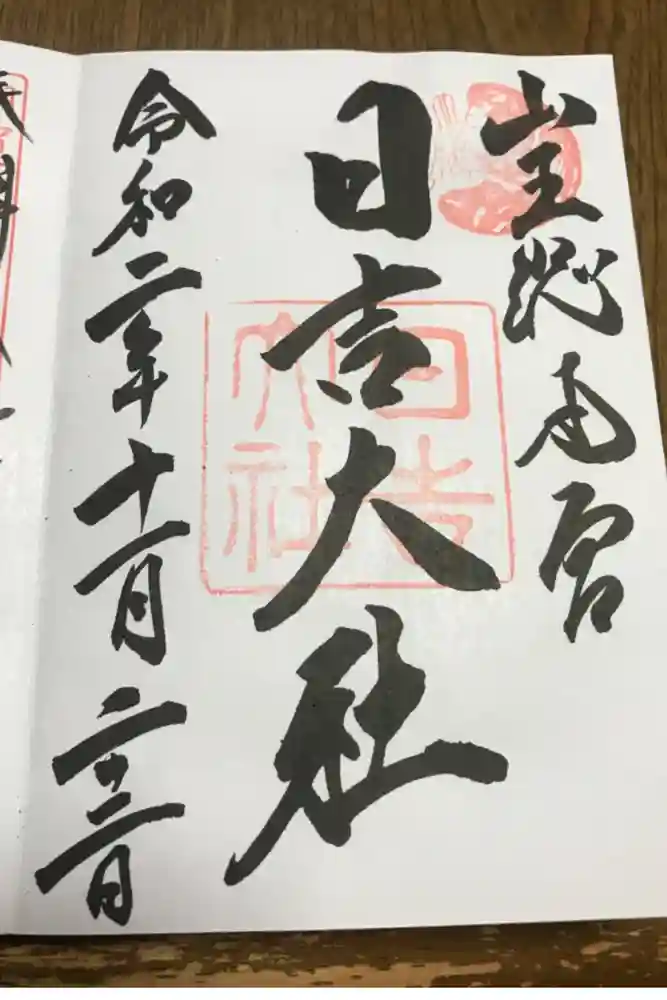 山王総本宮
日吉大社
令和二年十一月二十三日
日吉
大社